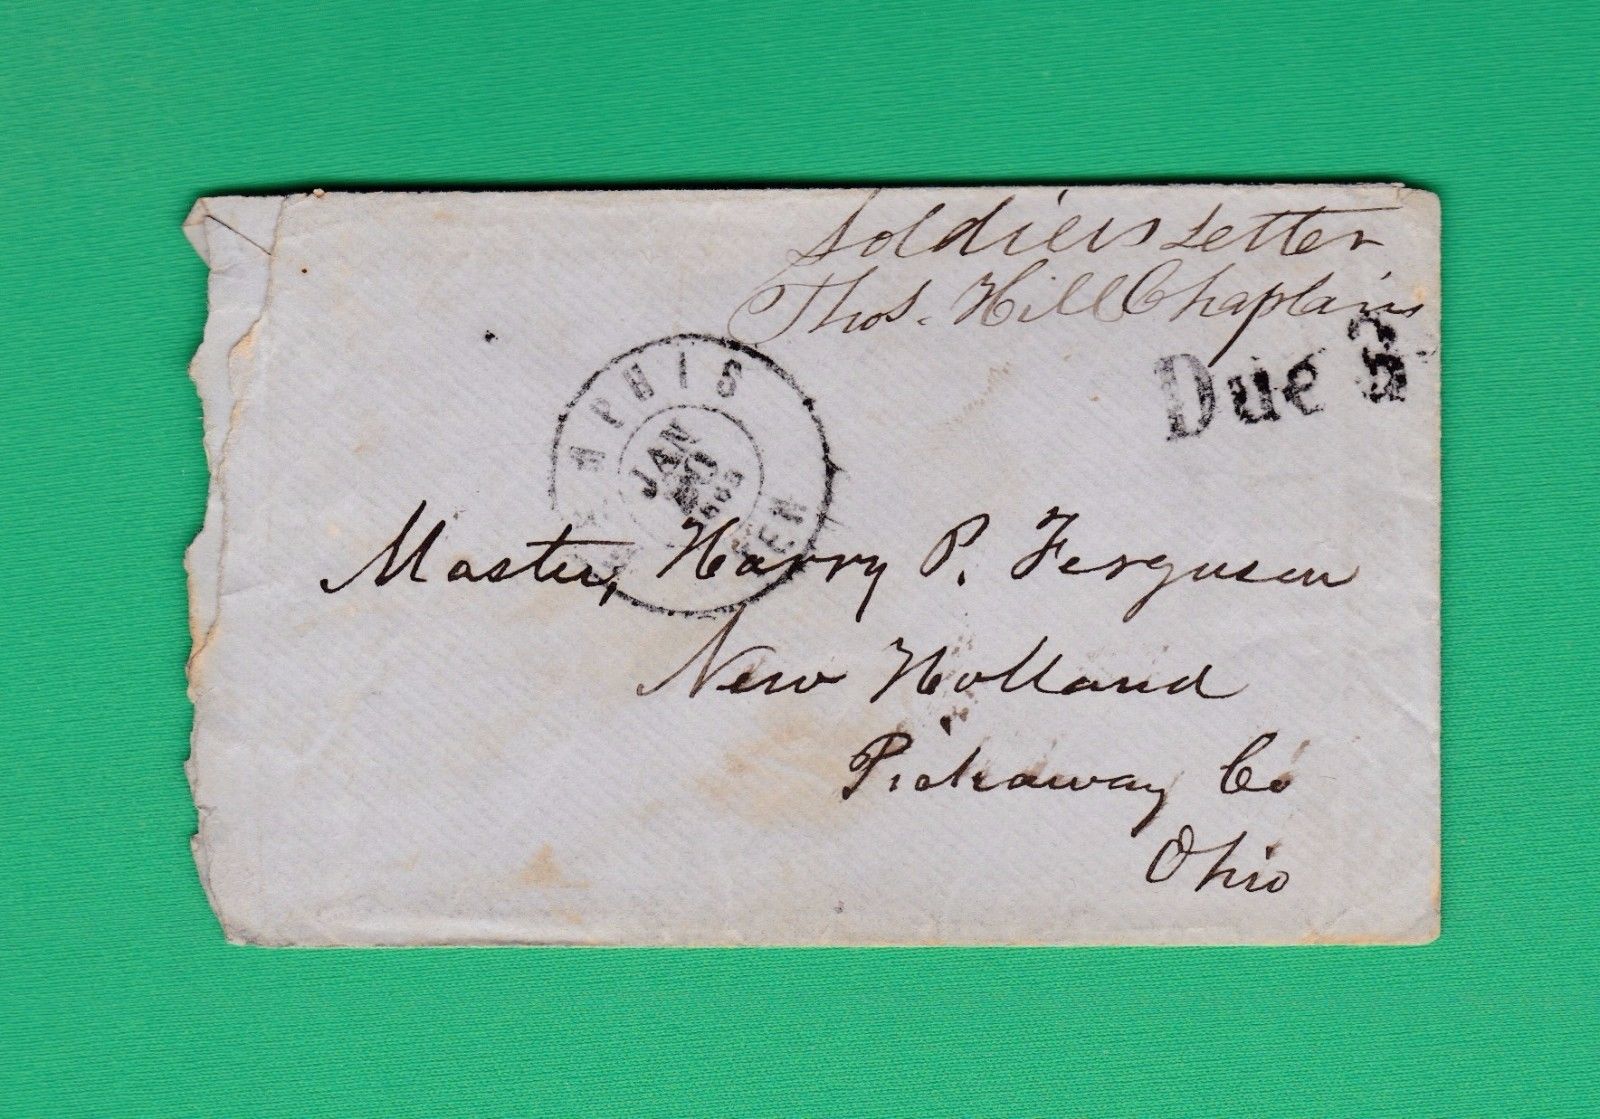 Soldiers Letter
Thos. Hill Chaplain
Due 3
MEMPHIS
JAN
20
TEN
Master, Harry P. Ferguson
New Holland
Pickaway Co
Ohio